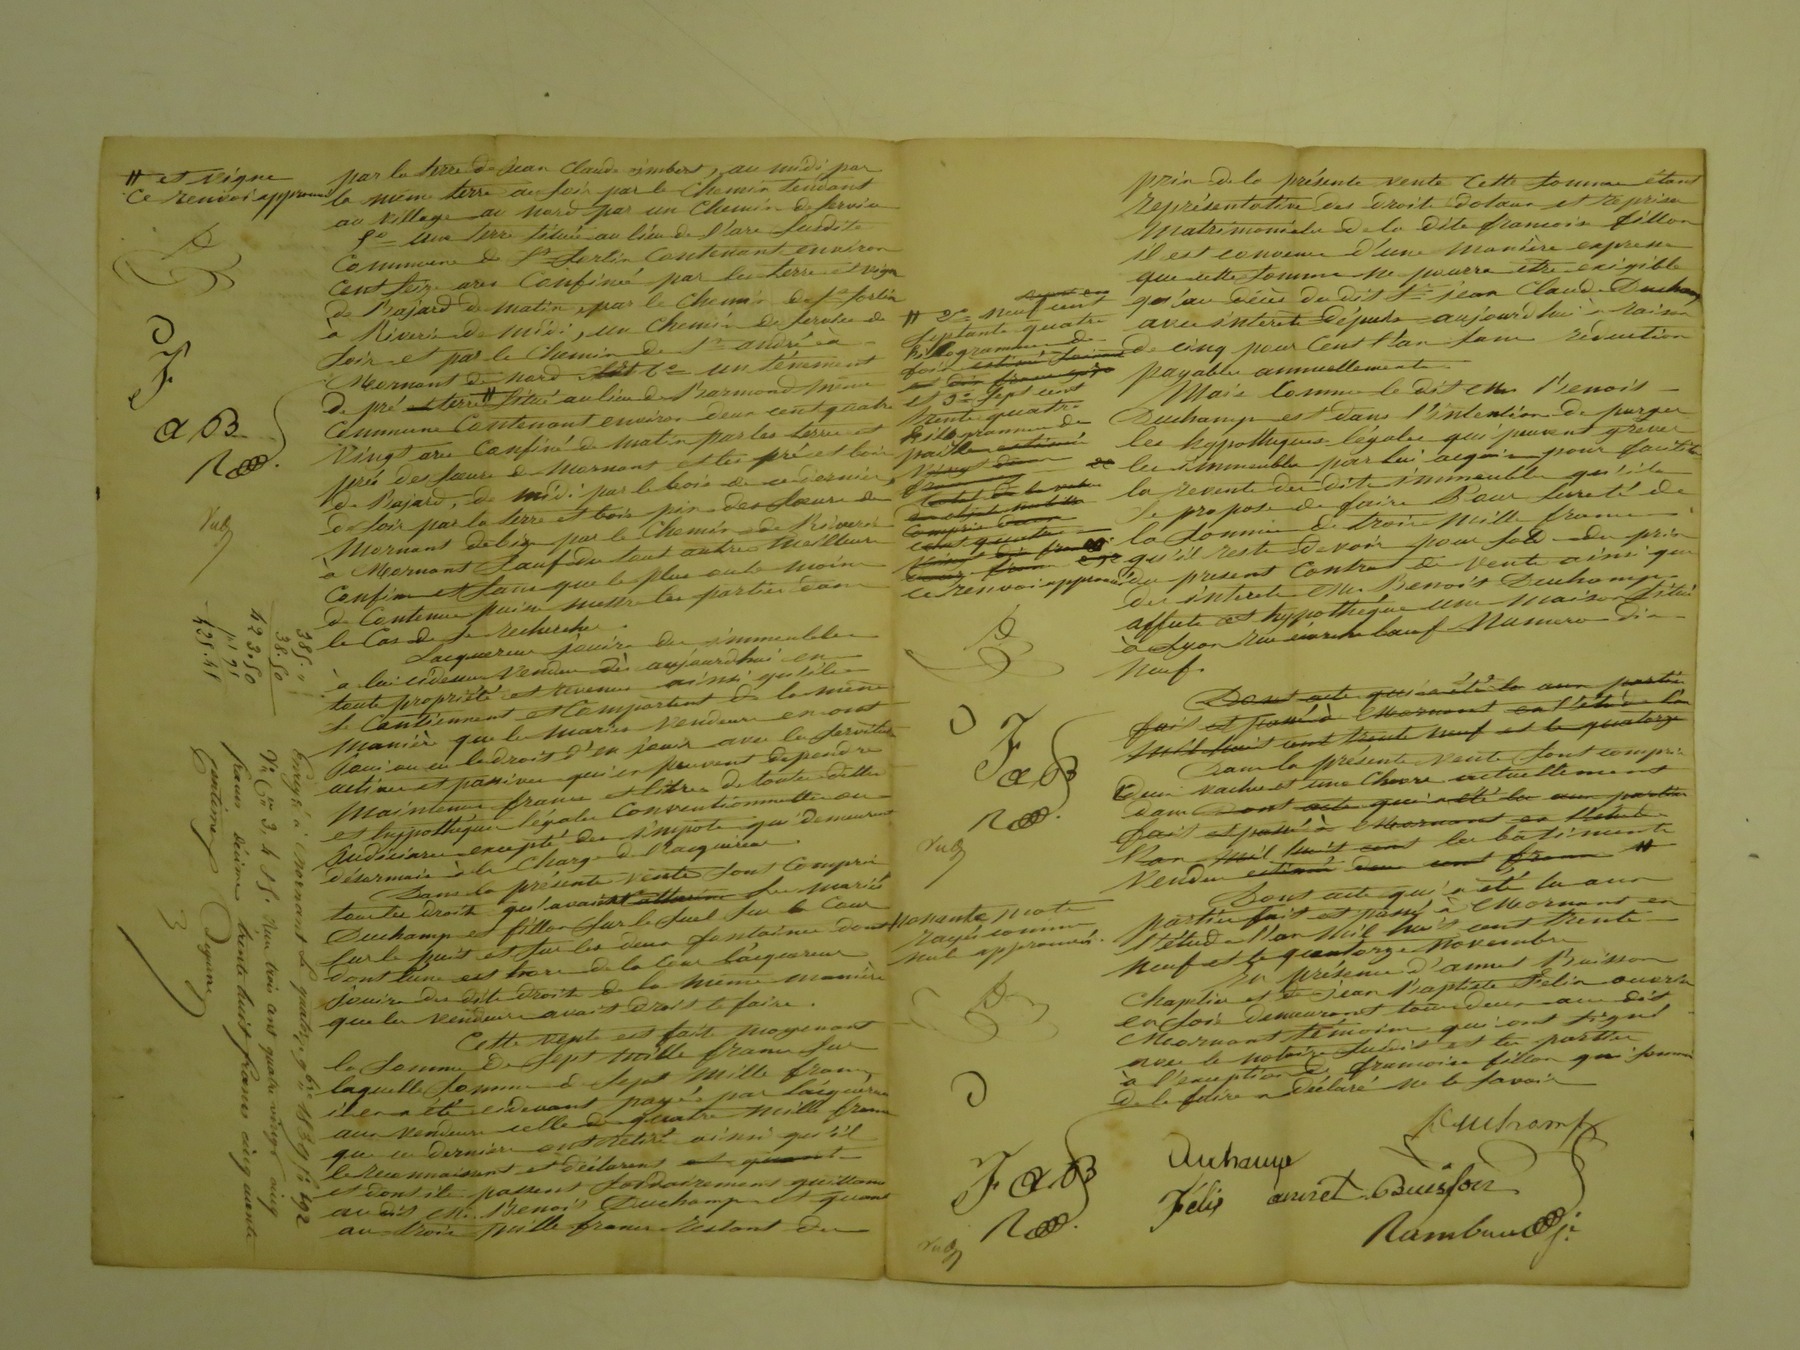 # et vigne
Ce renvoi approuvé
par la terre de jean Claude imbert, au midi par
la même terre au soir par le Chemin tendant
au village au nord par un Chemin de service
5º une terre située au lieu de l'are susdite
Commune de St Sorlin Contenant environ
cent seize ares Confinée par les terre et vigne
de Bajard de matin, par le Chemin de St Sorlin
à Riverie de midi, un Chemin de service de
soir et par le Chemin de St andré à
Mornant de nord 6º un ténement
de pré et terre # situé au lieu de même
Commune Contenant environ deux cent quatre
vingt ares Confiné de matin par les terre et
prés des sœurs de Mornant et les pré et bois
de Bajard, de midi par le bois de ce dernier,
de soir par la terre et bois pins des Sœurs de
Mornant de bise par le Chemin de Riverie
à Mornant Sauf du tout autres meilleurs
Confins et sans que le plus ou le moins
de Contenue puisse mettre les parties dans
le Cas de se rechercher.
L'acquereur jouira des immeubles
à lui cidessus vendus dès aujourd'hui en
toute propriété et revenus ainsi qu'ils
se Contiennent et Comportent de la même
manière que les mariés vendeurs en ont
joui ou eu le droit d'en jouir avec les servitudes
actives et passives qui en peuvent dependre
Maintenus francs et libres de toutes dettes
et hypothéques légales Conventionnelles ou
Judiciaires excepté des impots qui demeurent
désormais à la Charge de l'acquereur.
Dans la présente vente sont Compris
tous les droits qu'avaient les mariés
Duchamp et fillon sur le suel sur la Cour
sur le puit et sur les deux fontaines dont
dont l'une est hors de la Cour l'acquereur
jouira des dits droits de la même manière
que les vendeurs avait droit le faire.
Cette vente est fait moyenant
la somme de Sept mille francs sur
laquelle somme de Sept mille francs
il en a été cidevant payés par l'acquéreur
aux vendeurs celle de quatre mille francs
que ces derniers ont retiré ainsi qu'il
le reconnaissent et déclarent et quant
et dont ils passent solidairement quittance
au dit Mr Benoit Duchamp et quant
aux trois mille francs restant du
J
a B
385. "
38. 50
423. 50
Enregté à Mornant le quatorze 9bre 1839 fº 692
Vº Cases 3, 4 et 5. Reçu trois cent quatre vingt cinq
francs décime trente huit francs cinquante
centimes
prix de la présente vente Cette somme étant
représentative des droit dotaux et reprises
matrimoniales de la dite francoise fillon
il est convenu d'une manière expresse
que cette somme ne pourra être exigible
qu'au décès du dit Sr jean Claude Duchamp
avec intérêts depuis aujourd'hui à raison
de cinq pour Cent l'an sans réduction
payable annuellement
Mais Comme le dit Mr Benoit
Duchamp est dans l'intention de purger
les hypothéques légales qui peuvent grever
les immeubles par lui acquis pour faciliter
la revente des dits immeubles qu'il
se propose de faire Pour sureté de
la somme de trois mille francs
qu'il reste devoir pour solde du prix
du present Contrat de vente ainsi que
des intérêts Mr Benoit Duchamp
affecte et hypothéque une maison située
à Lyon rue écorche bœuf Numero dix
neuf.
# 2º neuf cent
septante quatre
Killogrammes de
foin
et 3º Sept cent
trente quatre
Killogrammes de
paille
ce renvoi approuvé
Dont acte qui a été lu aux parties
fait et passé à Mornant en l'étude l'an
mil huit cent trente neuf et le quatorze
Dans la présente vente sont compris
1º Deux vaches et une chevre actuellement
dans Dont acte qui a été lu aux parties
fait et passé à Mornant en l'étude
l'an mil huit cent les bâtiments
vendus estimés deux cent francs #
Dont acte qui a été lu aux
parties fait et passé à Mornant en
l'étude l'an mil huit cent trente
neuf et le quatorze Novembre
En présence d'annet Buisson
Chapelier et de jean Baptiste Félix ouvrier
en soie demeurant tous deux au dit
Mornant témoins qui ont signé
avec le notaire susdit et les parties
à l'exception de francoise fillon qui sommée
de le faire a déclaré ne le savoir
J a B
nonante mots
rayés comme
nuls approuvés.
J a B
Duchamp
Duchamp
Félix annet Buisson